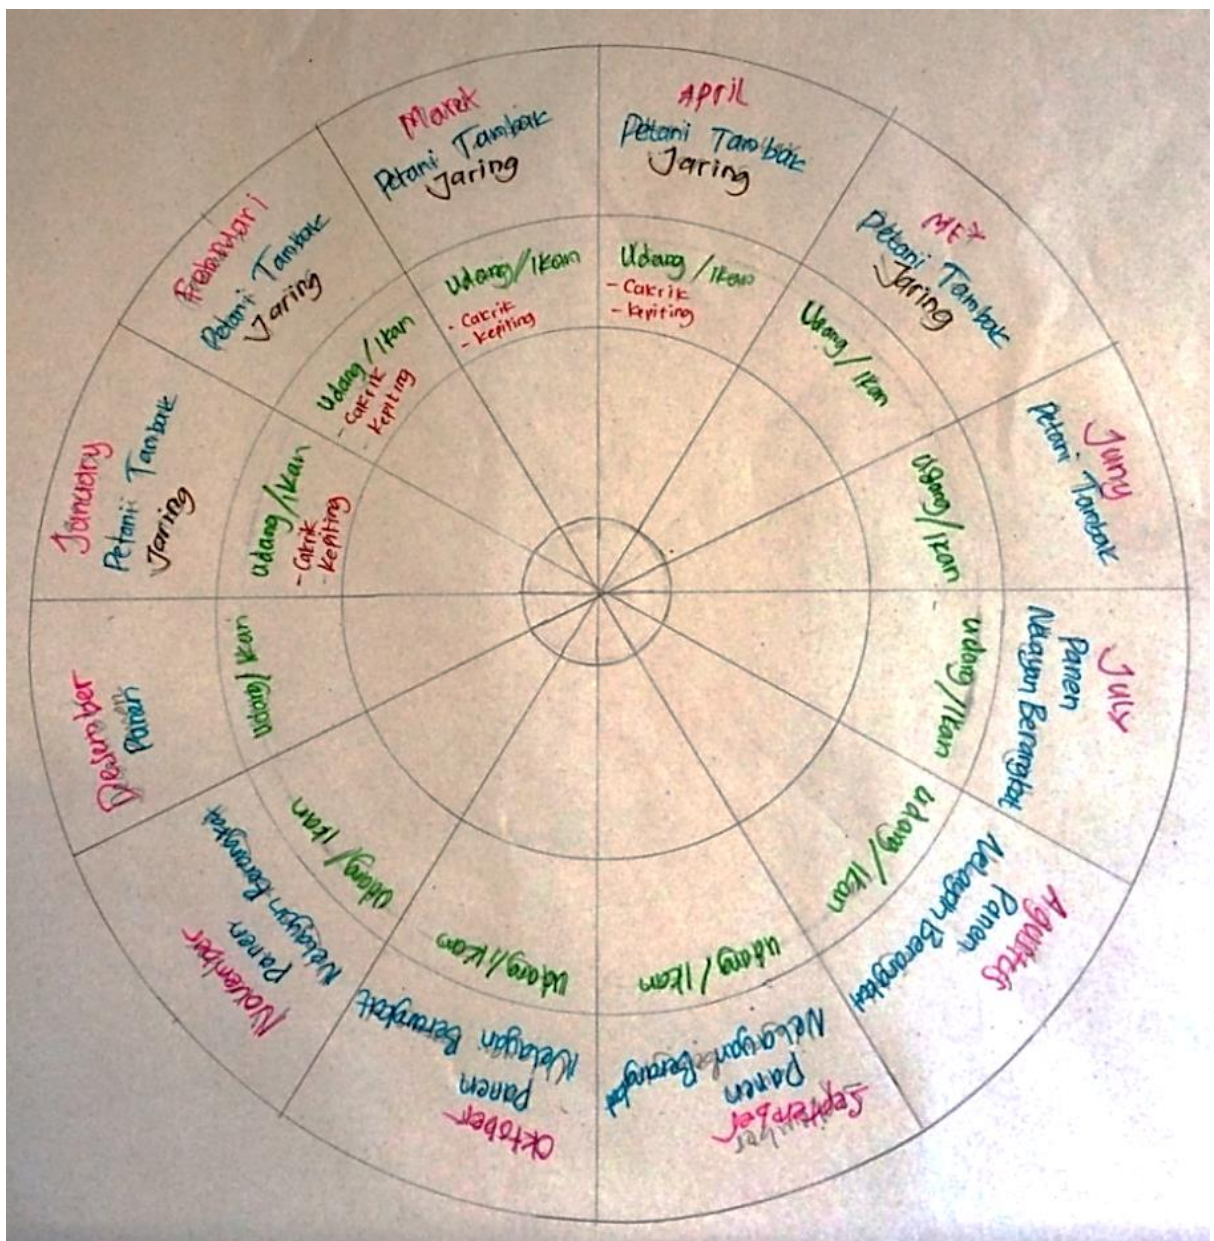 January
Petani Tambak
Jaring
Udang/Ikan
- Cakrik
- Kepiting
Frebruari
Petani Tambak
Jaring
Udang/Ikan
- Cakrik
- Kepiting
Maret
Petani Tambak
Jaring
Udang/Ikan
- Cakrik
- Kepiting
April
Petani Tambak
Jaring
Udang/Ikan
- Cakrik
- Kepiting
Petani Tambak
Jaring
Udang/Ikan
Juny
Petani Tambak
Udang/Ikan
July
Panen
Nelayan Berangkat
Udang/Ikan
Panen
Nelayan Berangkat
Udang/Ikan
September
Panen
Nelayan Berangkat
Udang/Ikan
Oktober
Panen
Nelayan Berangkat
Udang/Ikan
November
Panen
Nelayan Berangkat
Udang/Ikan
Desember
Panen
Udang/Ikan